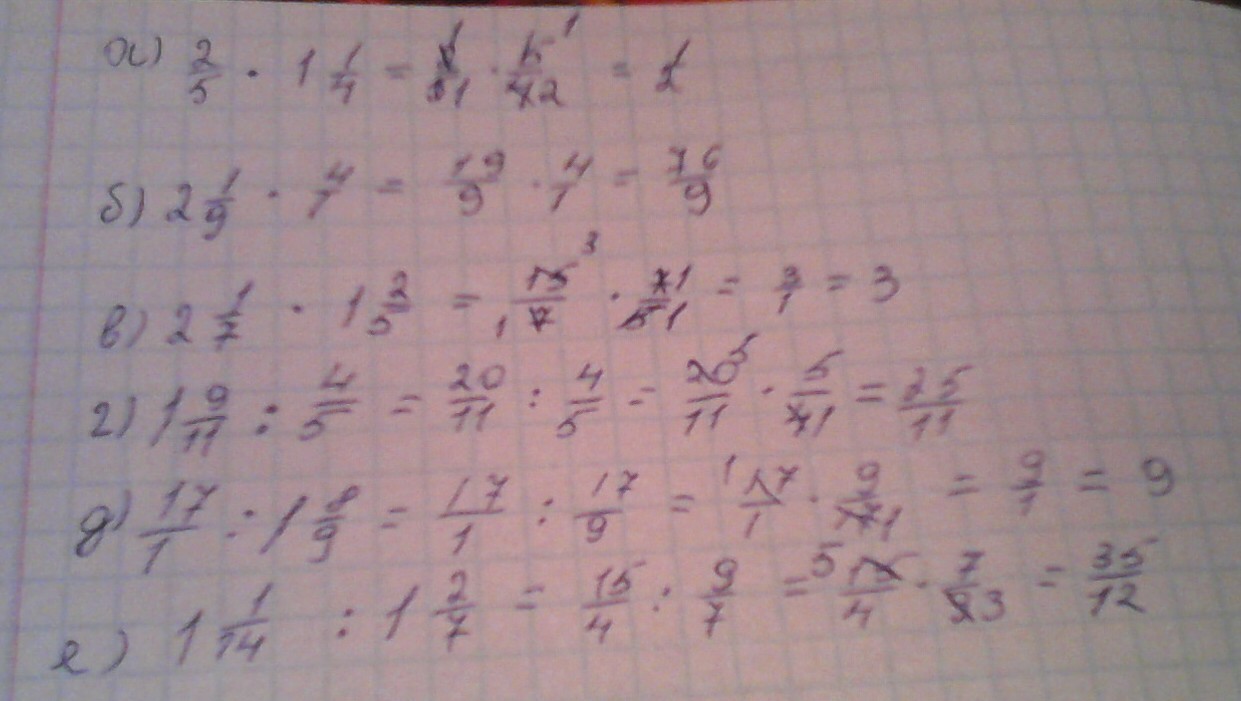 а) 2/5 · 1 1/4 = 2 1/5 1 · 5 1/4 2 = 1/2
б) 2 1/9 · 4/1 = 19/9 · 4/1 = 76/9
в) 2 1/7 · 1 2/5 = 15 3/7 1 · 7 1/5 1 = 3/1 = 3
г) 1 9/11 : 4/5 = 20/11 : 4/5 = 20 5/11 · 5/4 1 = 25/11
д) 17/1 : 1 8/9 = 17/1 : 17/9 = 1 17/1 · 9/17 1 = 9/1 = 9
е) 1 1/14 : 1 2/7 = 15/4 : 9/7 = 5 15/4 · 7/9 3 = 35/12